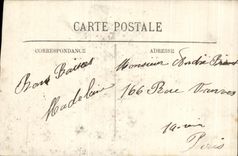 CARTE POSTALE
CORRESPONDANCE
ADRESSE
Bons Baisers
Madeleine
Monsieur André
166 Rue
Paris